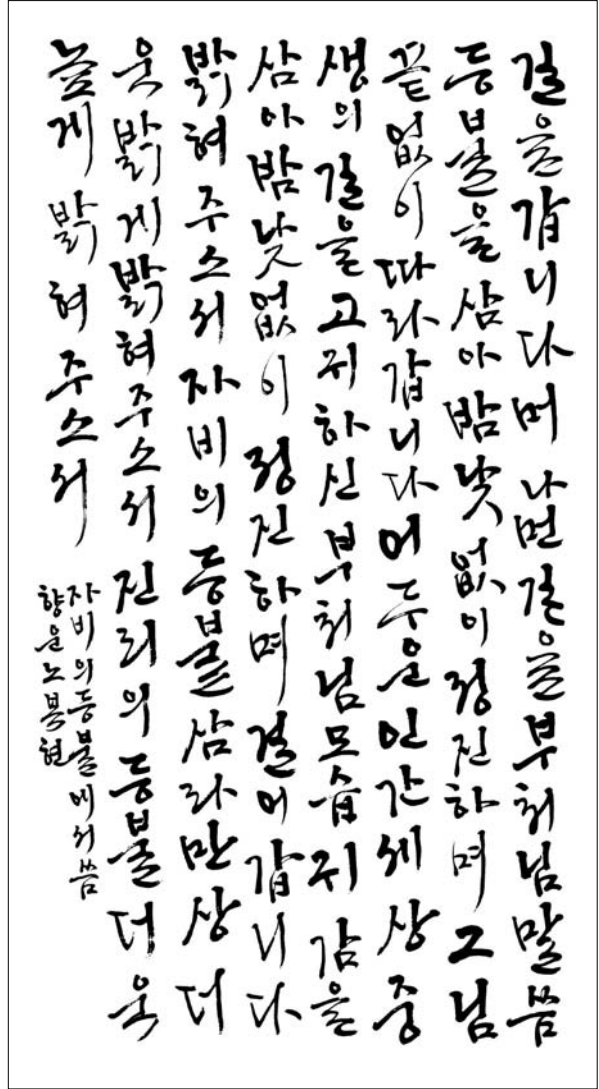 길을갑니다머나먼길을부처님말씀
등불을삼아밤낮없이정진하며그님
끝없이따라갑니다어두운인간세상중
생의길을고귀하신부처님모습귀감을
삼아밤낮없이정진하며걸어갑니다
밝혀주소서자비의등불삼라만상더
욱밝게밝혀주소서진리의등불더욱
높게밝혀주소서
자비의등불에서씀
향운노봉현